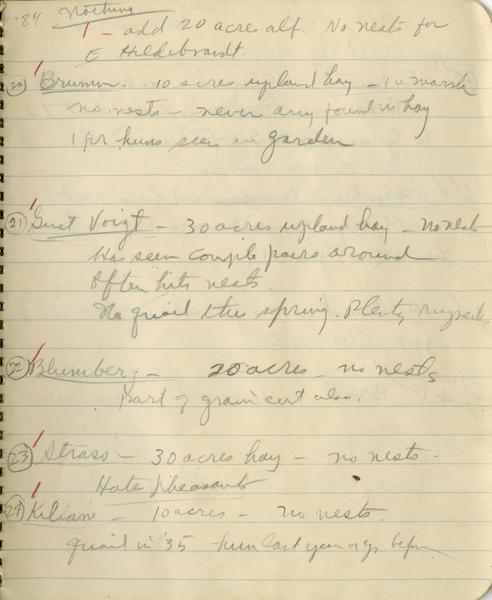 84. Nothing
1 - add 20 acres alf. No nests for
E Hildebrandt.
20 Brumm. 10 acres upland hay - 10 marsh
no nests - never any found in hay
1 pr huns seen in garden
21 Gust Voigt - 30 acres upland hay - no nests
Has seen couple pairs around
Often hits nests.
No quail this spring. Plenty ringnecks
22 Blumberg - 20 acres - no nests
Part of grain cut also.
23 Strass - 30 acres hay - no nests.
Hate pheasants
24 Kilian - 10 acres - no nests.
quail in '35. hun last year or yr before